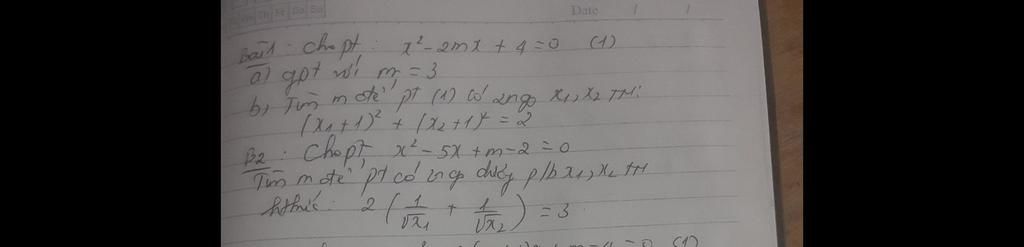 Date / /
Bài 1 : Cho pt : x² - 2mx + 4 = 0 (1)
a) gpt với m = 3
b, Tìm m để pt (1) có 2 ngo x₁, x₂ TM:
(x₁+1)² + (x₂+1)² = 2
B2 : Cho pt x² - 5x + m - 2 = 0
Tìm m để pt có 2 ngo dương p/b x₁, x₂ TM
hthức : 2 ( 1/√x₁ + 1/√x₂ ) = 3
= 0 (1)